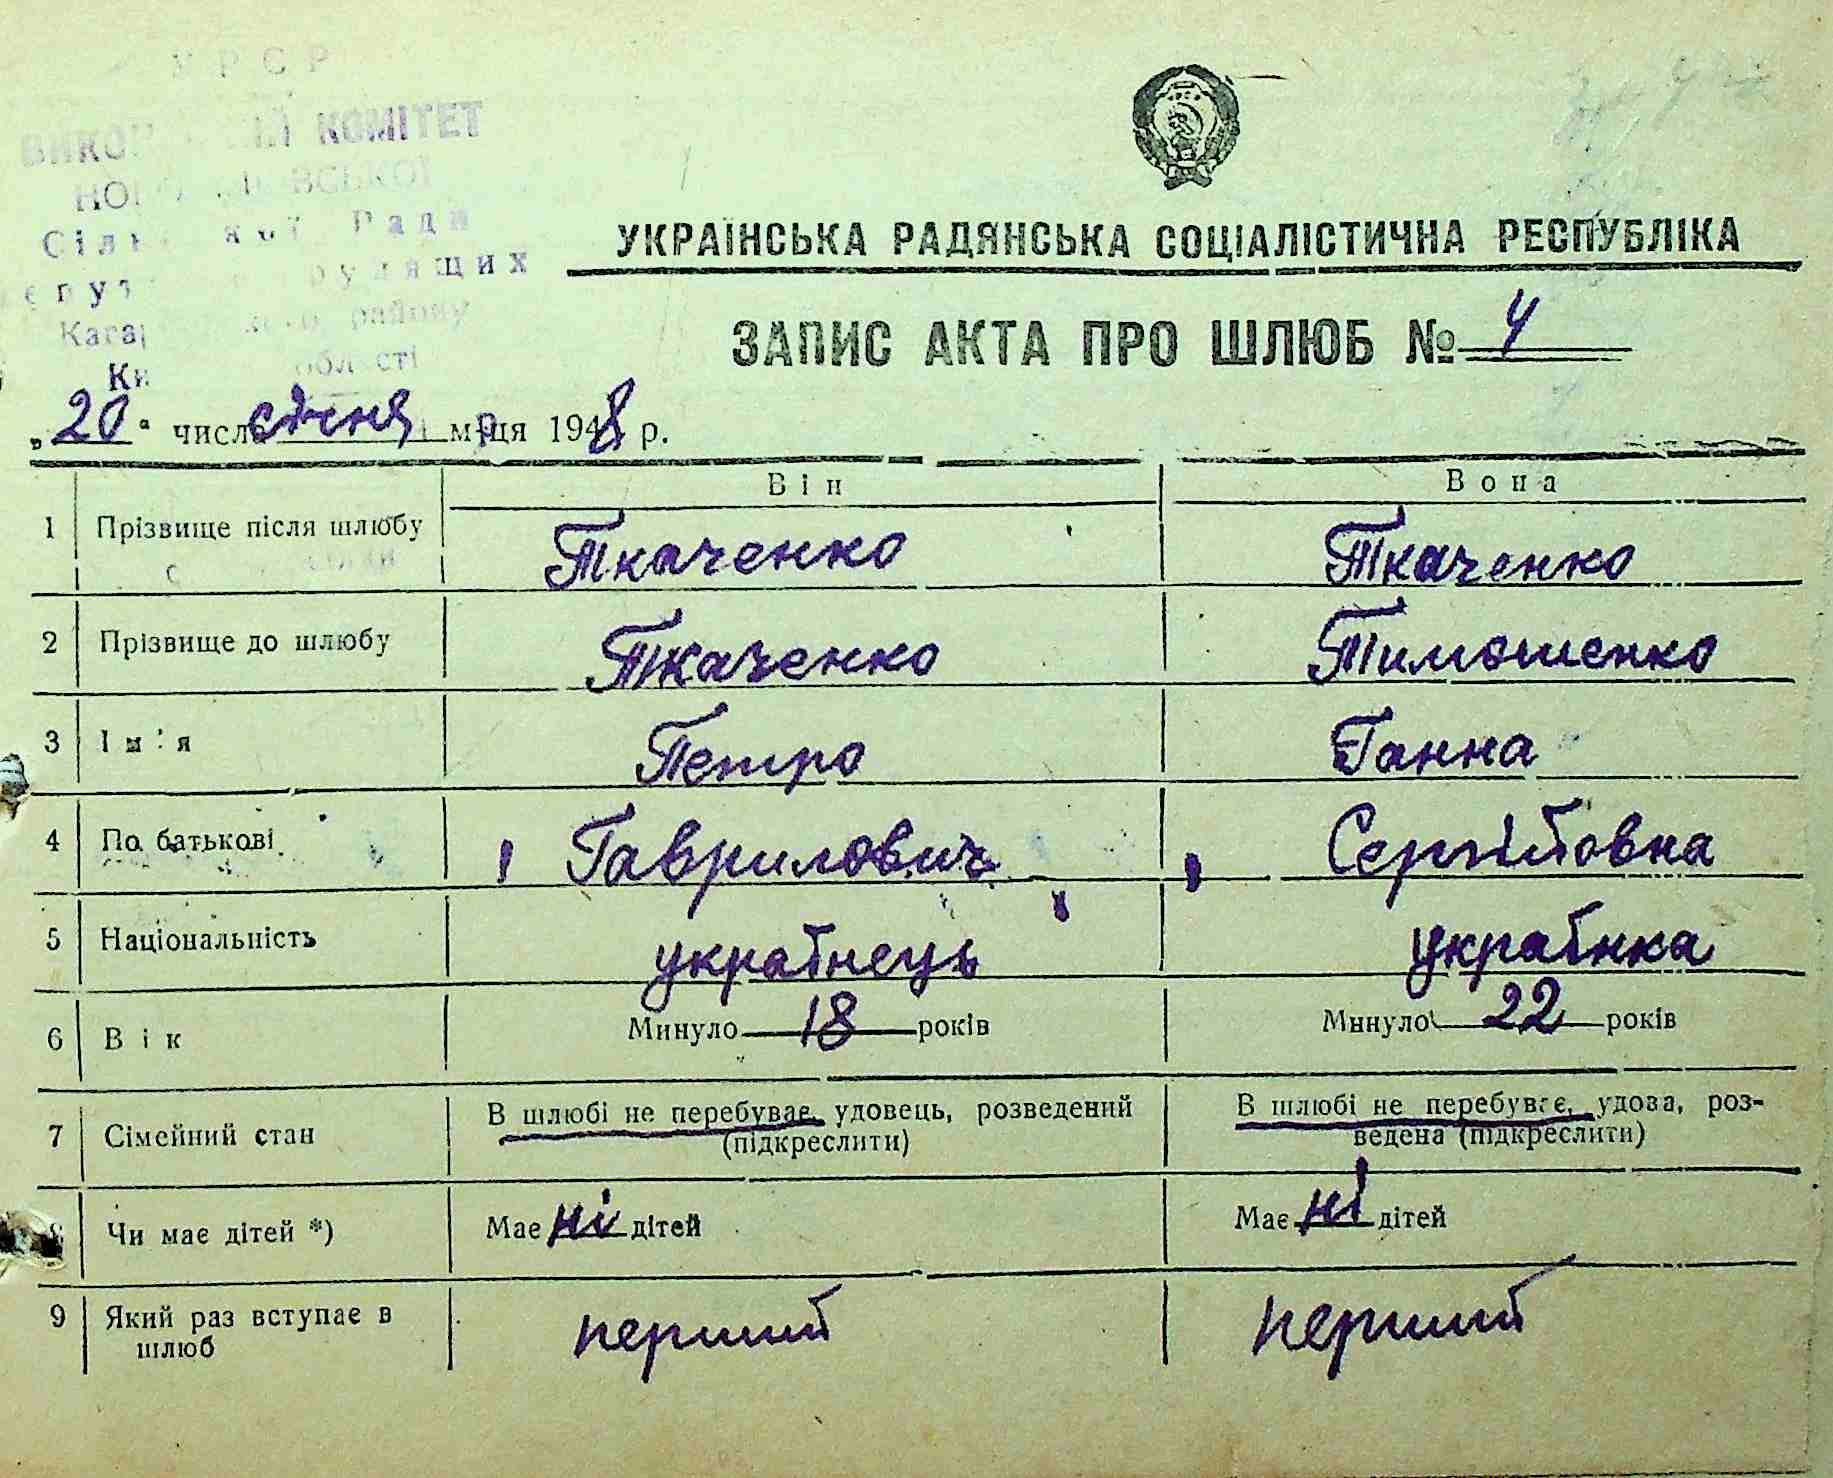 УРСР
КОМІТЕТ
Ради
району
області
УКРАЇНСЬКА РАДЯНСЬКА СОЦІАЛІСТИЧНА РЕСПУБЛІКА
ЗАПИС АКТА ПРО ШЛЮБ № 4
„20“ числа січня м-ця 1948 р.
Він Вона
1 Прізвище після шлюбу Ткаченко Ткаченко
2 Прізвище до шлюбу Ткаченко Тимошенко
3 Ім'я Петро Ганна
4 По батькові Гаврилович Сергіївна
5 Національність українець українка
6 Вік Минуло 18 років Минуло 22 років
7 Сімейний стан В шлюбі не перебуває, удовець, розведений В шлюбі не перебуває, удова, роз-
(підкреслити) ведена (підкреслити)
8 Чи має дітей *) Має ні дітей Має ні дітей
9 Який раз вступає в перший перший
шлюб